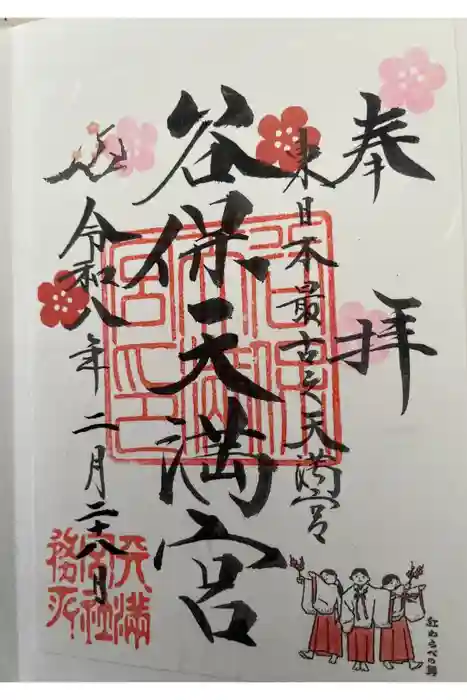 奉拝
東日本最古之天満宮
谷保天満宮
令和八年二月二十八日
天満宮社務所
紅わらべの舞